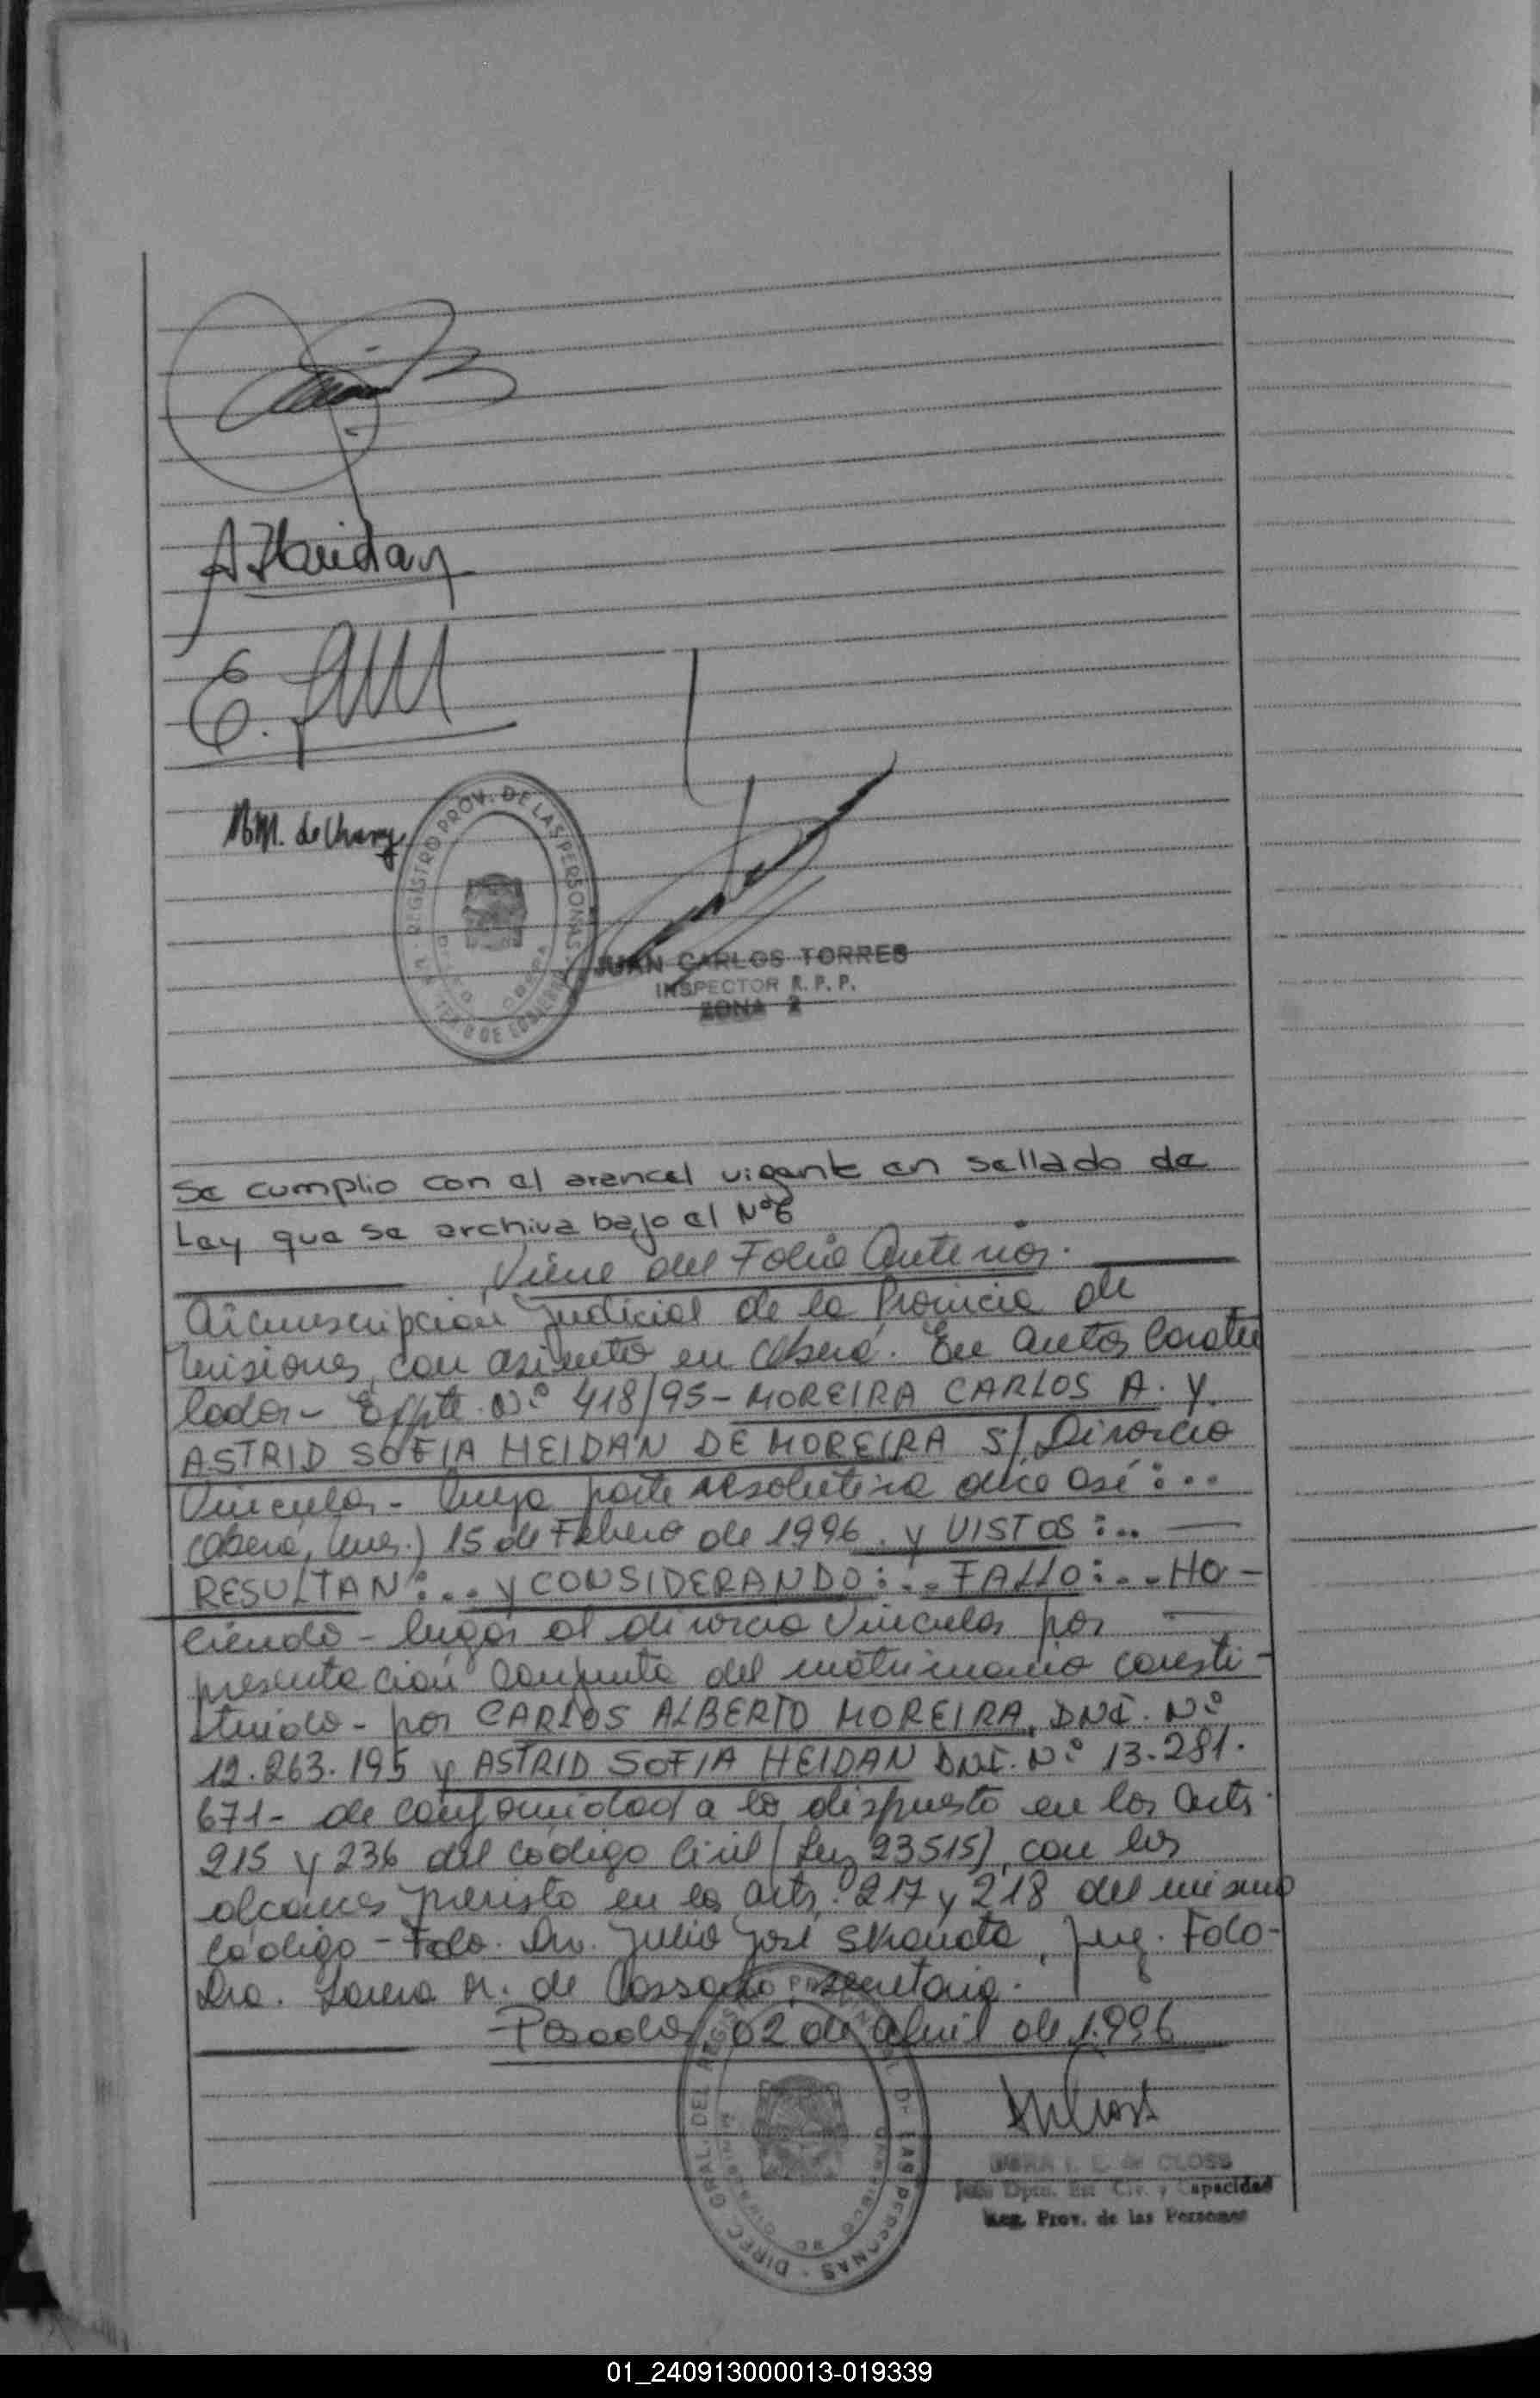 A Heidan
E.
M. de
REGISTRO PROV. DE LAS PERSONAS
JUAN CARLOS TORRES
INSPECTOR R. P. P.
ZONA 2
Se cumplio con el arancel vigente en sellado de
Ley que se archiva bajo el Nº6
Viene del Folio Anterior.
Circunscripción Judicial de la Provincia de
Misiones, con asiento en Oberá. En autos Caratu
lados- Expte. Nº 418/95- MOREIRA CARLOS A. y
ASTRID SOFIA HEIDAN DE MOREIRA S/ Divorcio
Vincular- Cuya parte resolutiva dice así:...
Oberá, (Mnes.) 15 de Febrero de 1996. y VISTOS:..
RESULTAN:... y CONSIDERANDO:... FALLO:... Ha-
ciendo- lugar al divorcio Vincular por
presentación Conjunta del matrimonio consti-
tuido- por CARLOS ALBERTO MOREIRA, DNI. Nº
12.263.195 y ASTRID SOFIA HEIDAN DNI. Nº 13.281.
671- de conformidad a lo dispuesto en los arts.
215 y 236 del Código Civil (Ley 23515), con los
alcances previsto en los arts. 217 y 218 del mismo
Código- Fdo. Dr. Julio José Skanata, Juez. Fdo-
Dra. M. de Cassado, secretaria.
Posadas, 02 de abril de 1.996
DIREC. GRAL. DEL REGISTRO PROVINCIAL DE LAS PERSONAS
I. E. de CLOSS
Jefe Dpto. Est. Civ. y Capacidad
Reg. Prov. de las Personas
01_240913000013-019339